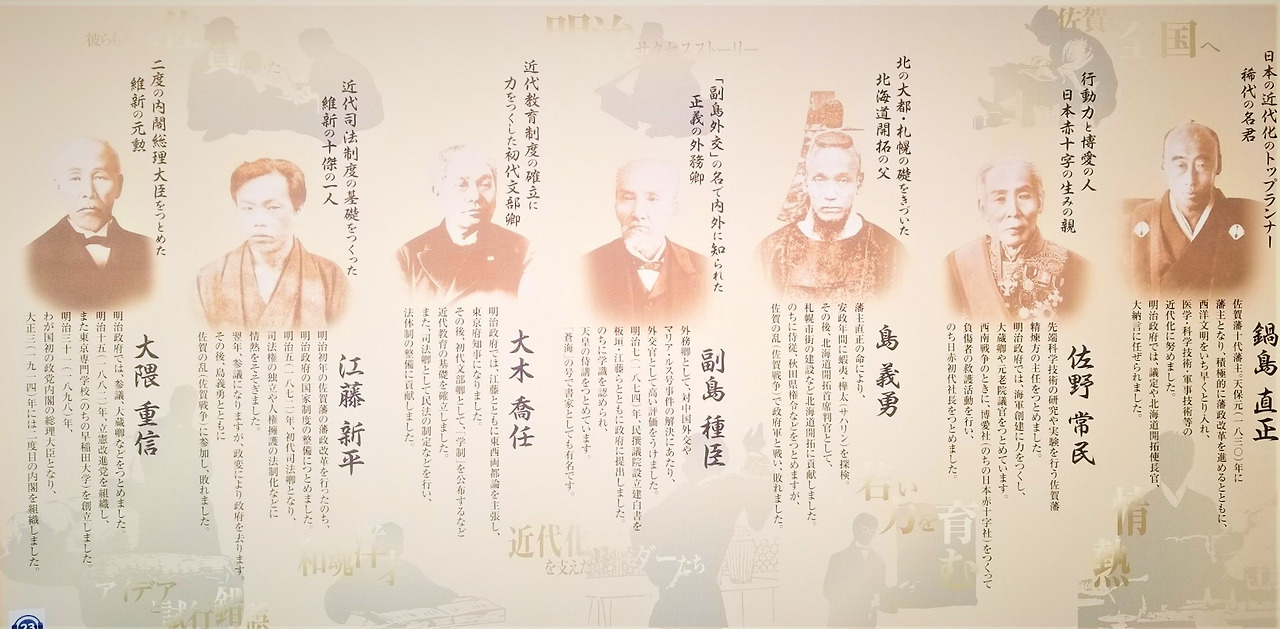 日本の近代化のトップランナー
稀代の名君
鍋島 直正
佐賀藩十代藩主。天保元(一八三〇)年に
藩主となり、積極的に藩政改革を進めるとともに、
西洋文明をいち早くとり入れ、
医学・科学技術・軍事技術等の
近代化に努めました。
明治政府では、議定や北海道開拓使長官、
大納言に任ぜられました。
行動力と博愛の人
日本赤十字の生みの親
佐野 常民
先端科学技術の研究や実験を行う佐賀藩
精煉方の主任をつとめました。
明治政府では、海軍創建に力をつくし、
大蔵卿や元老院議官をつとめています。
西南戦争のときに、博愛社(のちの日本赤十字社)をつくって
負傷者の救護活動を行い、
のち日赤初代社長をつとめました。
北の大都・札幌の礎をきづいた
北海道開拓の父
島 義勇
藩主直正の命により、
安政年間に蝦夷・樺太(サハリン)を探検。
その後、北海道開拓首席判官として、
札幌市街の建設など北海道開拓に貢献しました。
のちに侍従、秋田県権令などをつとめますが、
佐賀の乱(佐賀戦争)で政府軍と戦い、敗れました。
「副島外交」の名で内外に知られた
正義の外務卿
副島 種臣
外務卿として、対中国外交や
マリア・ルス号事件の解決にあたり、
外交官として高い評価をうけました。
明治七(一八七四)年、民撰議院設立建白書を
板垣・江藤らとともに政府に提出しました。
のちに学識を認められ、
天皇の書の講話をつとめています。
「蒼海」の号で書家としても有名です。
近代教育制度の確立に
力をつくした初代文部卿
大木 喬任
明治政府では、江藤とともに東西両都論を主張し、
東京府知事になりました。
その後、初代文部卿として、「学制」を公布するなど
近代教育の基礎を確立しました。
また、司法卿として民法の制定などを行い、
法体制の整備に貢献しました。
近代司法制度の基礎をつくった
維新の十傑の一人
江藤 新平
明治初年の佐賀藩の藩政改革を行ったのち、
明治政府の国家制度の整備につとめました。
明治五(一八七二)年、初代司法卿となり、
司法権の独立や人権擁護の法制化などに
情熱をそそぎました。
翌年、参議になりますが、政変により政府を去ります。
その後、島義勇とともに
佐賀の乱(佐賀戦争)に参加し、敗れました。
二度の内閣総理大臣をつとめた
維新の元勲
大隈 重信
明治政府では、参議、大蔵卿などをつとめました。
明治十五(一八八二)年、立憲改進党を組織し、
また東京専門学校(のちの早稲田大学)を創立しました。
明治三十一(一八九八)年、
わが国初の政党内閣の総理大臣となり、
大正三(一九一四)年には、二度目の内閣を組織しました。
佐賀
全国へ
明治
サクセスストーリー
彼らも
若い
力を
育む
情
熱
近代化
を支えた
ダーたち
和魂洋才
アイデア
と
試行錯誤
23